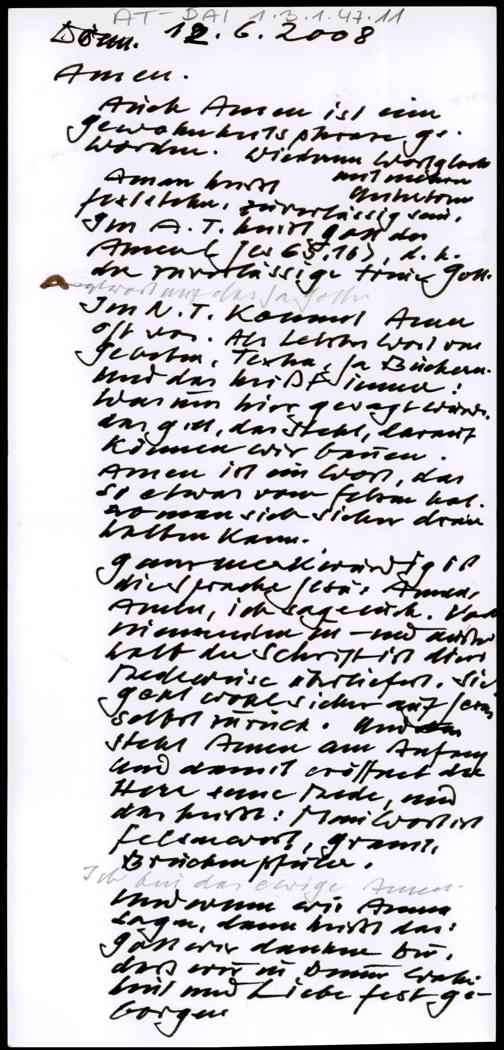 AT-DAI 1.3.1.47.11
Döm. 12.6.2008
Amen.
Auch Amen ist eine
gewohnheitsphrase ge-
worden. Wiederum
mit meinen
Amen heißt
feststehen, zuverlässig sein.
Im A.T. heißt Gott der
Amen (Jes 65,16), d.h.
die zuverlässige Treue Gott.
Antwort auf das Ja Gottes
Im N.T. kommt Amen
oft vor. Als letztes Wort von
Gebeten, Texten, ja Büchern.
Und das heißt immer:
Was nun hier gesagt wurde,
das gilt, das steht, darauf
können wir bauen.
Amen ist ein Wort, das
so etwas vom Felsen hat,
wo man sich sicher dran
halten kann.
Ganz merkwürdig ist
die Sprache Jesu: Amen,
Amen, ich sage euch. Von
niemanden in - und außer
halb der Schrift ist diese
Redeweise überliefert. Sie
geht wohl sicher auf Jesus
selbst zurück. Und
steht Amen am Anfang
und damit eröffnet der
Herr seine Rede, und
das heißt: Mein Wort ist
Felsenwort, Granit,
Brückenpfeiler.
Ich bin das ewige Amen.
Und wenn wir Amen
sagen, dann heißt das:
Gott wir danken Dir,
daß wir in Deiner
und Liebe fest ge-
borgen